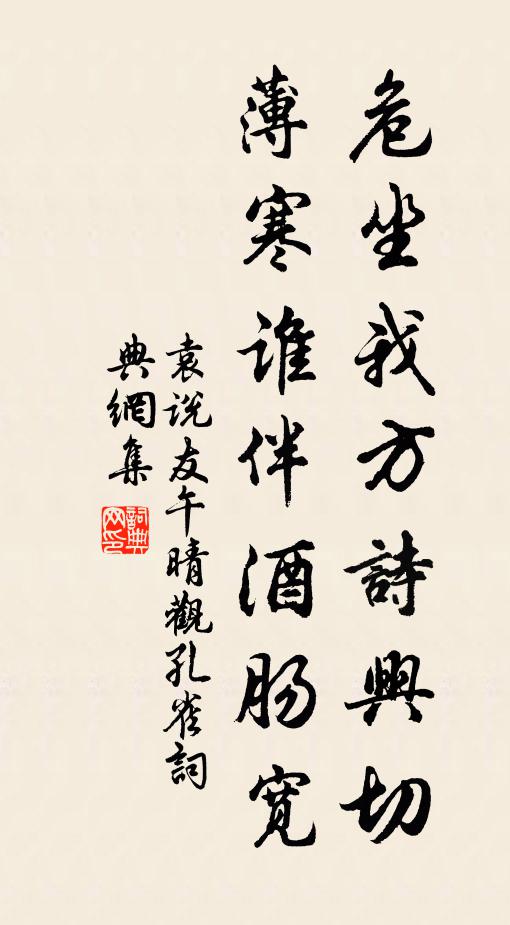 危坐我方詩興切
薄寒谁伴酒肠寬
袁说友午晴觀孔雀詞
典網集
詞典网印